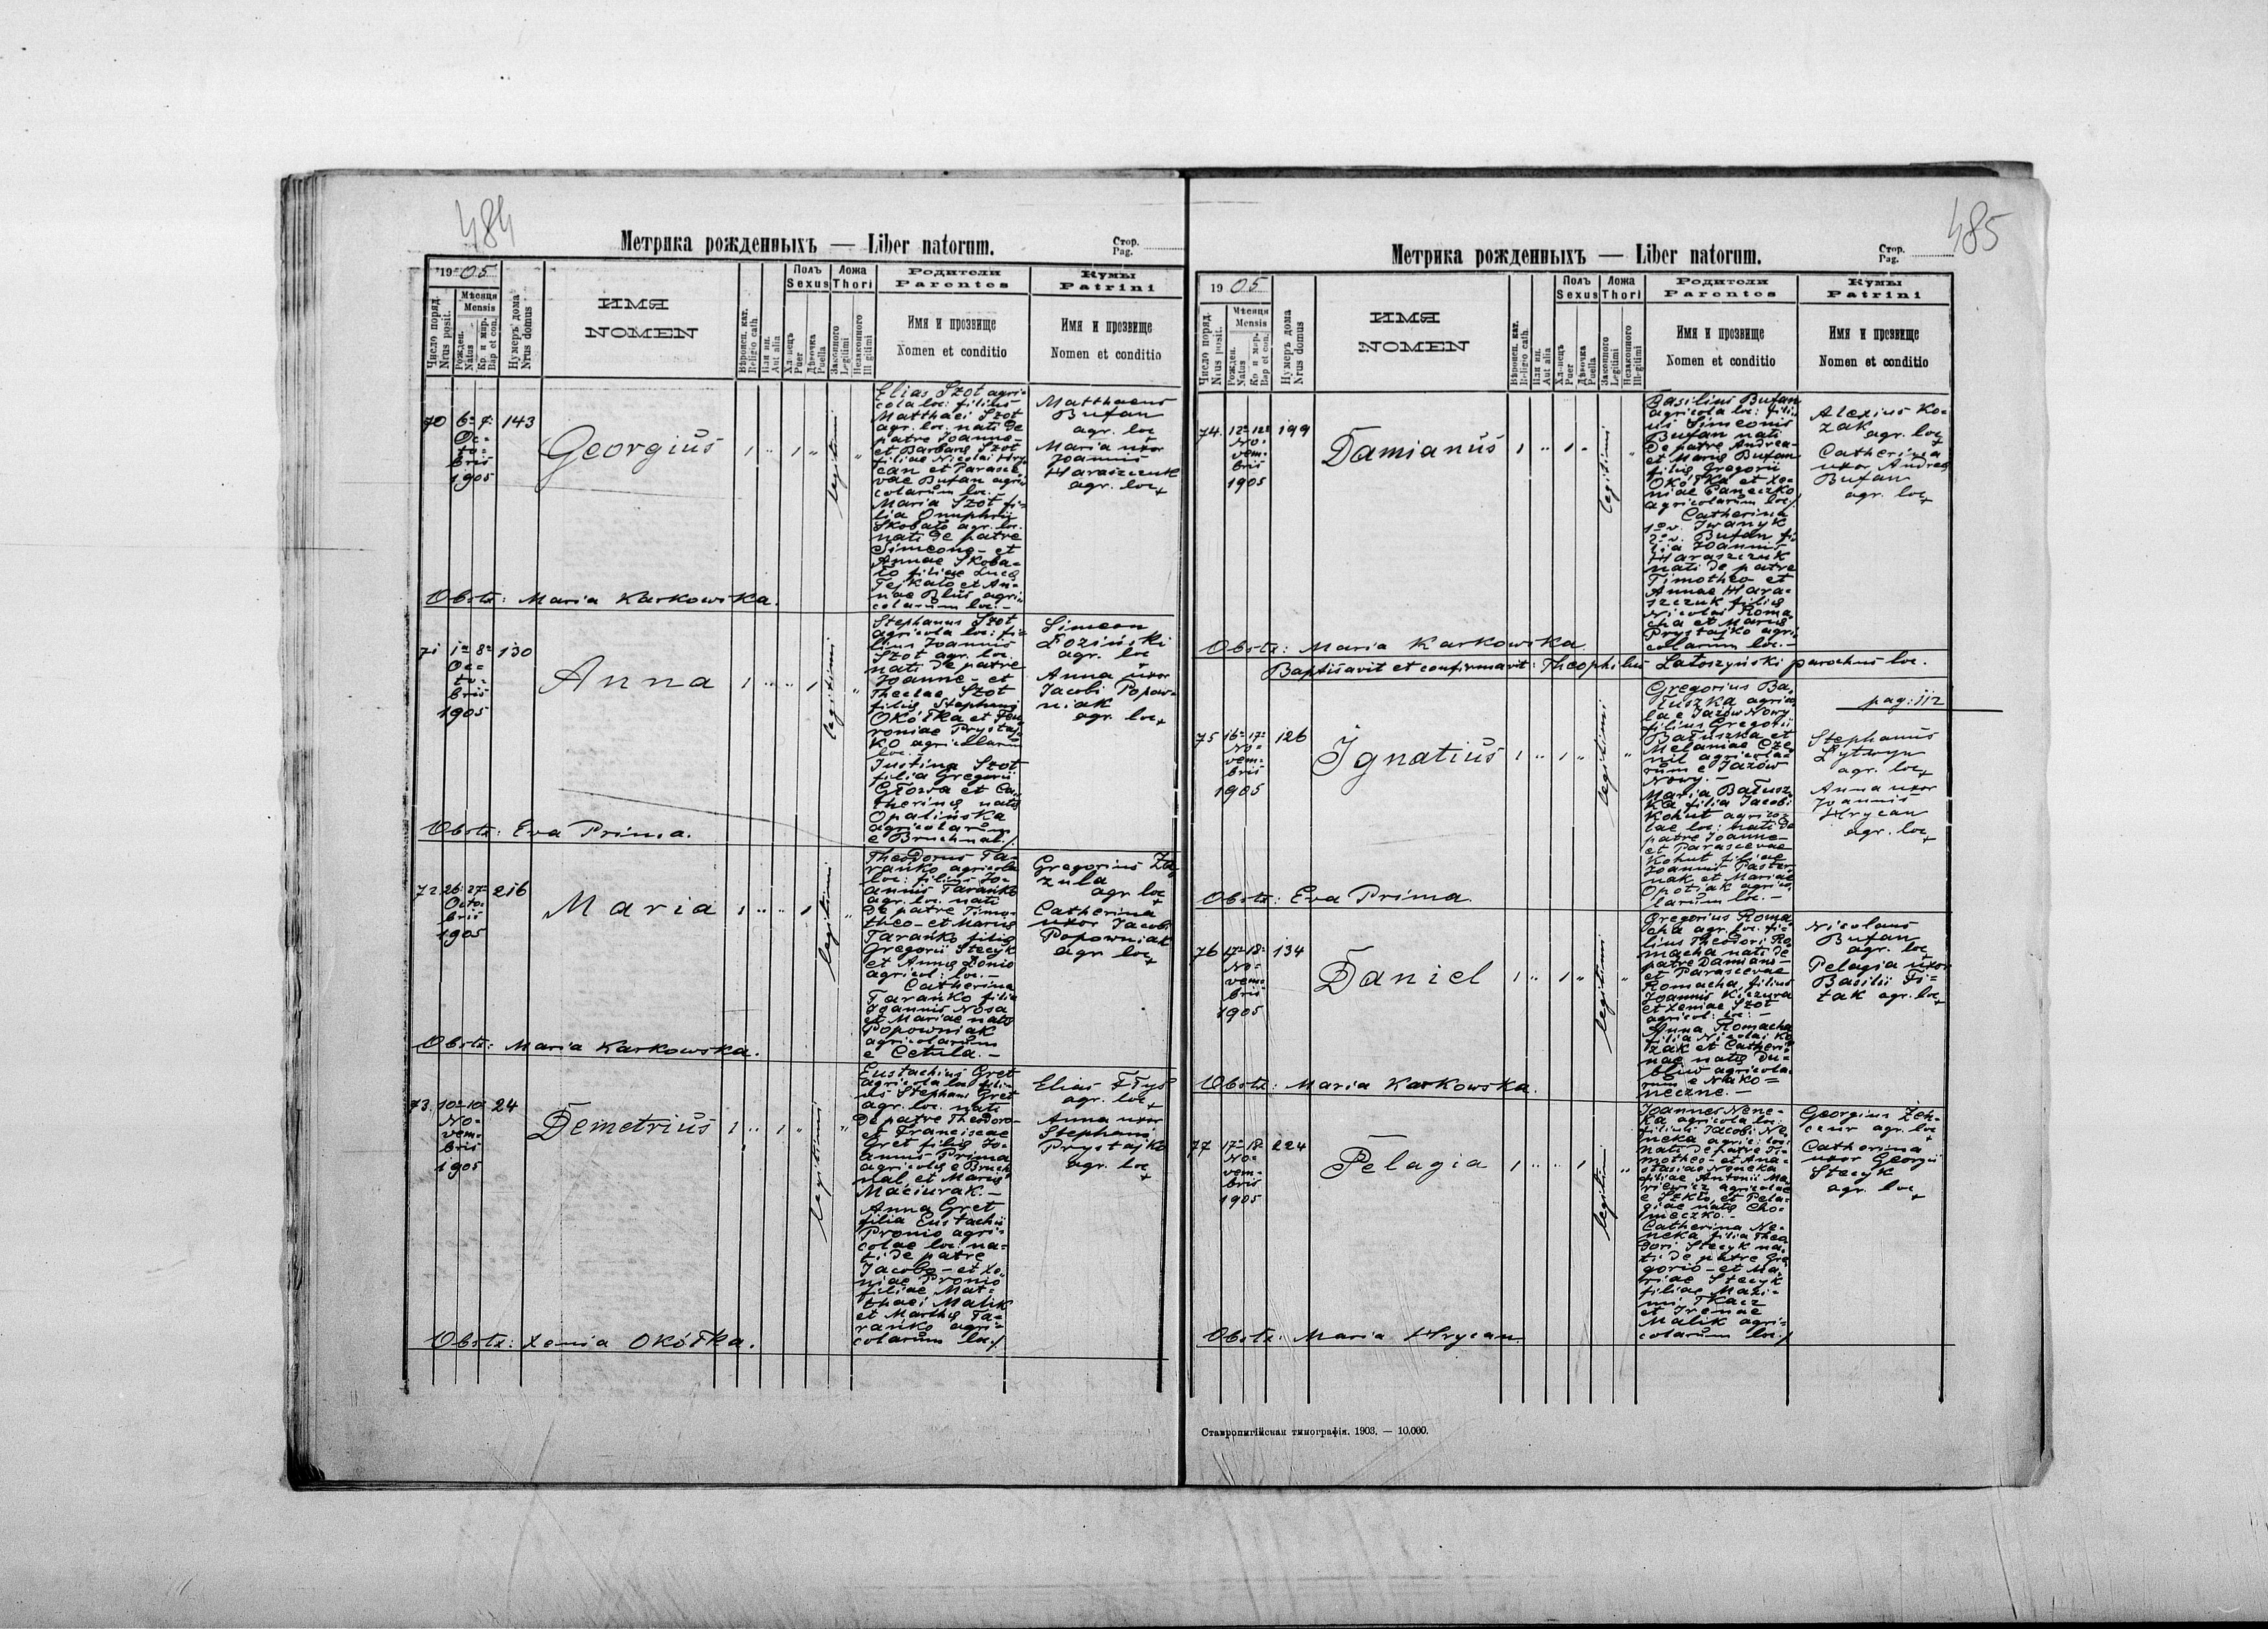 484
Метрика рожденныхъ — Liber natorum.
Стор.
Pag.
1905
Число поряд.
Nrus posit.
Мѣсяця
Mensis
Рожден.
Natus
Кр. и мир.
Bap et con.
Нумеръ дома
Nrus domus
ИМЯ
NOMEN
Вѣроисп. кат.
Religio cath.
Или ин.
Aut alia
Полъ
Sexus
Хлопецъ
Puer
Дѣвочка
Puella
Ложа
Thori
Законного
Legitimi
Незаконного
Illegitimi
Родители
Parentes
Имя и прозвище
Nomen et conditio
Кумы
Patrini
Имя и прозвище
Nomen et conditio
70 6. 7. 143
Oc-
to-
bris
1905
Georgius
legitimi
Elias Szot agri-
cola loc: filius
Matthaei Szot
agr. loc. nati de
patre Joanne-
et Barbara Szot
filiae Nicolai Hry-
can et Parasce-
vae Bufan agri-
colarum loc. -
Maria Szot fi-
lia Onuphrii
Skobało agr. loc.
nati de patre
Simeone - et
Annae Skoba-
ło filiae Lucae
Fejkało et An-
nae Blus agri-
colarum loc. -
Matthaeus
Bufan
agr. loc
Maria uxor
Joannis
Haraszczuk
agr. loc
Obstx: Maria Karkowska.
71 1. 8. 130
Oc-
to-
bris
1905
Anna
legitimi
Stephanus Szot
agricola loc: fi-
lius Joannis
Szot agr. loc.
nati de patre
Joanne - et
Theclae Szot
filiae Stephani
Okółka et Fev-
roniae Prystaj-
ko agricolarum
loc: -
Justina Szot
filia Gregorii
Głowa et Ca-
therinae natae
Opalińska
agricolarum
e Bruchnal.
Simeon
Łoziński
agr. loc
Anna uxor
Jacobi Popow-
niak
agr. loc
Obstx: Eva Prima.
72 26. 27. 216
Octo-
bris
1905
Maria
legitimi
Theodorus Ta-
rańko agricola
loc: filius Jo-
annis Tarańko
agr. loc. nati
de patre Timo-
theo - et Mariae
Tarańko filiae
Gregorii Stecyk
et Annae Donio
agricol: loc. -
Catherina
Tarańko filia
Joannis Nosa
et Mariae natae
Popowniak
agricolarum
e Cetula. -
Gregorius Za-
zula
agr loc
Catherina
uxor Jacobi
Popowniak
agr loc
Obstx: Maria Karkowska.
73. 10. 10. 24
No-
vem-
bris
1905
Demetrius
legitimi
Eustachius Gret
agricola loc. fili-
us Stephani Gret
agr. loc. nati
de patre Theodoro-
et Franciscae
Gret filiae Jo-
annis Prima
agricolae e Bruch-
nal et Mariae
Maciurak. -
Anna Gret
filia Eustachii
Pronio agri-
colae loc: na-
ti de patre
Jacobo - et Xe-
niae Pronio
filiae Mat-
thaei Malik
et Marthae Ta-
rańko agri-
colarum loc.
Elias Fłys
agr. loc
Anna uxor
Stephani
Prystajko
agr. loc
Obstx: Xenia Okółka.
485
Метрика рожденныхъ — Liber natorum.
Стор.
Pag.
1905
Число поряд.
Nrus posit.
Мѣсяця
Mensis
Рожден.
Natus
Кр. и мир.
Bap et con.
Нумеръ дома
Nrus domus
ИМЯ
NOMEN
Вѣроисп. кат.
Religio cath.
Или ин.
Aut alia
Полъ
Sexus
Хлопецъ
Puer
Дѣвочка
Puella
Ложа
Thori
Законного
Legitimi
Незаконного
Illegitimi
Родители
Parentes
Имя и прозвище
Nomen et conditio
Кумы
Patrini
Имя и прозвище
Nomen et conditio
74. 12. 12. 199
No-
vem-
bris
1905
Damianus
legitimi
Basilius Bufan
agricola loc: fili-
us Simeonis
Bufan nati
de patre Andrea-
et Mariae Bufan
filiae Gregorii
Okółka et Xe-
niae Paneczko
agricolarum loc.
Catherina
1º v. Iwanyk
2º v. Bufan fi-
lia Joannis
Haraszczuk
nati de patre
Timotheo et
Annae Hara-
szczuk filiae
Nicolai Roma-
cha et Mariae
Prystajko agri-
colarum loc. -
Alexius Ko-
zak
agr. loc
Catherina
uxor Andreae
Bufan
agr. loc
Obstx: Maria Karkowska
Baptisavit et confirmavit: Theophilus Latoszyński parochus loc.
pag: 112
75 16. 17. 126
No-
vem-
bris
1905
Ignatius
legitimi
Gregorius Ba-
łuszka agrico-
lae Jazów Nowy
filius Gregorii
Bałuszka et
Melaniae Cze-
nil agricola-
rum e Jazów
Nowy. -
Maria Bałusz-
ka filia Jacobi
Kohut agrico-
lae loc: nati de
patre Joanne -
et Parascevae
Kohut filiae
Joannis Paster-
nak et Mariae
Opotiak agrico-
larum loc. -
Stephanus
Lytwyn
agr. loc
Anna uxor
Joannis
Hrycan
agr. loc
Obstx: Eva Prima.
76 17. 18. 134
No-
vem-
bris
1905
Daniel
legitimi
Gregorius Roma-
cha agr. loc. fi-
lius Theodori Ro-
macha nati de
patre Damiano -
et Parascevae
Romacha filius
Joannis Kiczura
et Xeniae Szot
agricol: loc: -
Anna Romacha
filia Nicolai Ko-
zak et Catheri-
nae natae Du-
bliw agricola-
rum e Nako-
neczne. -
Nicolaus
Bufan
agr. loc
Pelagia uxor
Basilii Fi-
tak agr. loc
Obstx: Maria Karkowska.
77 17. 18. 224
No-
vem-
bris
1905
Pelagia
legitimi
Joannes Nene-
ka agricola loc:
filius Jacobi Ne-
neka agric: loc:
nati de patre Ti-
motheo - et Ana-
stasiae Neneka
filiae Antonii Ma-
riewicz agricolae
e Szkło, et Pela-
giae natae Cho-
mieczko. -
Catherina Ne-
neka filia Theo-
dori Stecyk na-
ti de patre Gre-
gorio - et Ma-
riae Stecyk
filiae Maxi-
mi Tkacz
et Irenae
Malik agri-
colarum loc.
Georgius
agr. loc
Catherina
uxor Georgii
Stecyk
agr. loc
Obstx: Maria Hrycan.
Ставропигійская типографія. 1903. — 10.000.